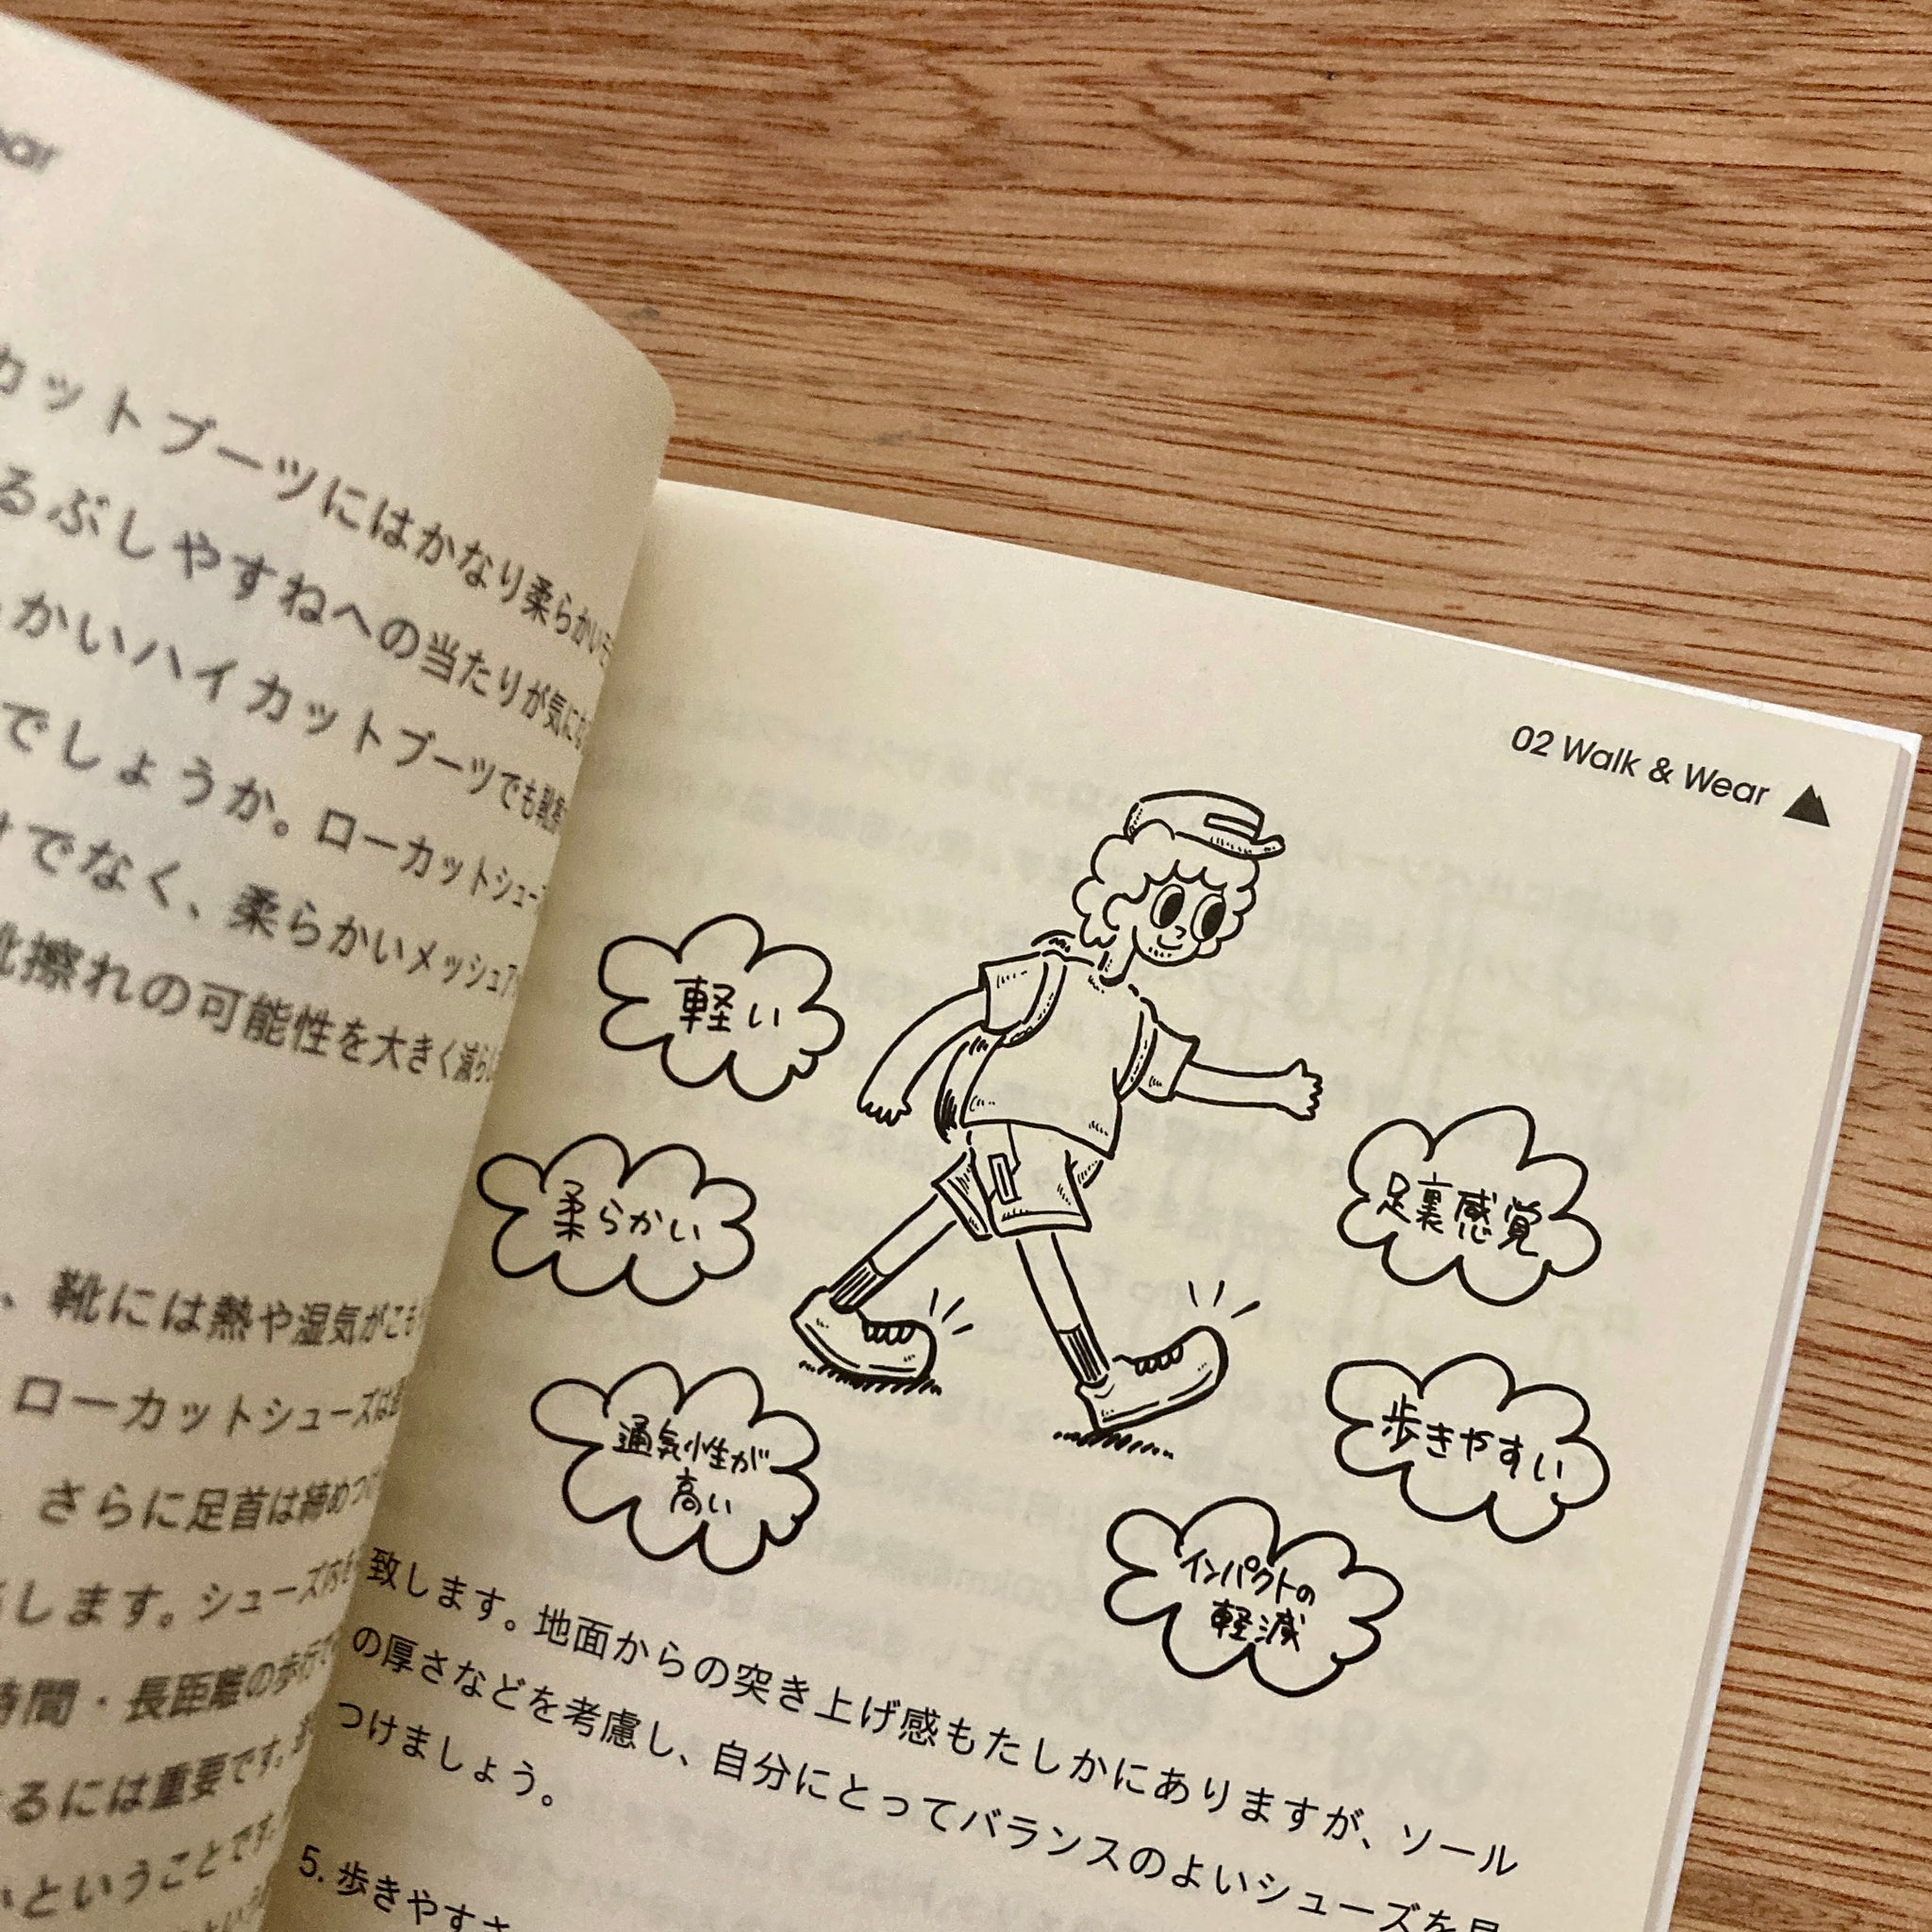 カットブーツにはかなり柔らかいモ
るぶしやすねへの当たりが気にな
かいハイカットブーツでも靴擦
でしょうか。ローカットシュー
でなく、柔らかいメッシュア
擦れの可能性を大きく減らし
、靴には熱や湿気がこも
ローカットシューズは
さらに足首は締めつ
します。シューズ内
時間・長距離の歩行
るには重要です。
ということです。
02 Walk & Wear
軽い
柔らかい
通気性が
高い
足裏感覚
歩きやすい
インパクトの
軽減
致します。地面からの突き上げ感もたしかにありますが、ソール
の厚さなどを考慮し、自分にとってバランスのよいシューズを見
つけましょう。
5. 歩きやすさ